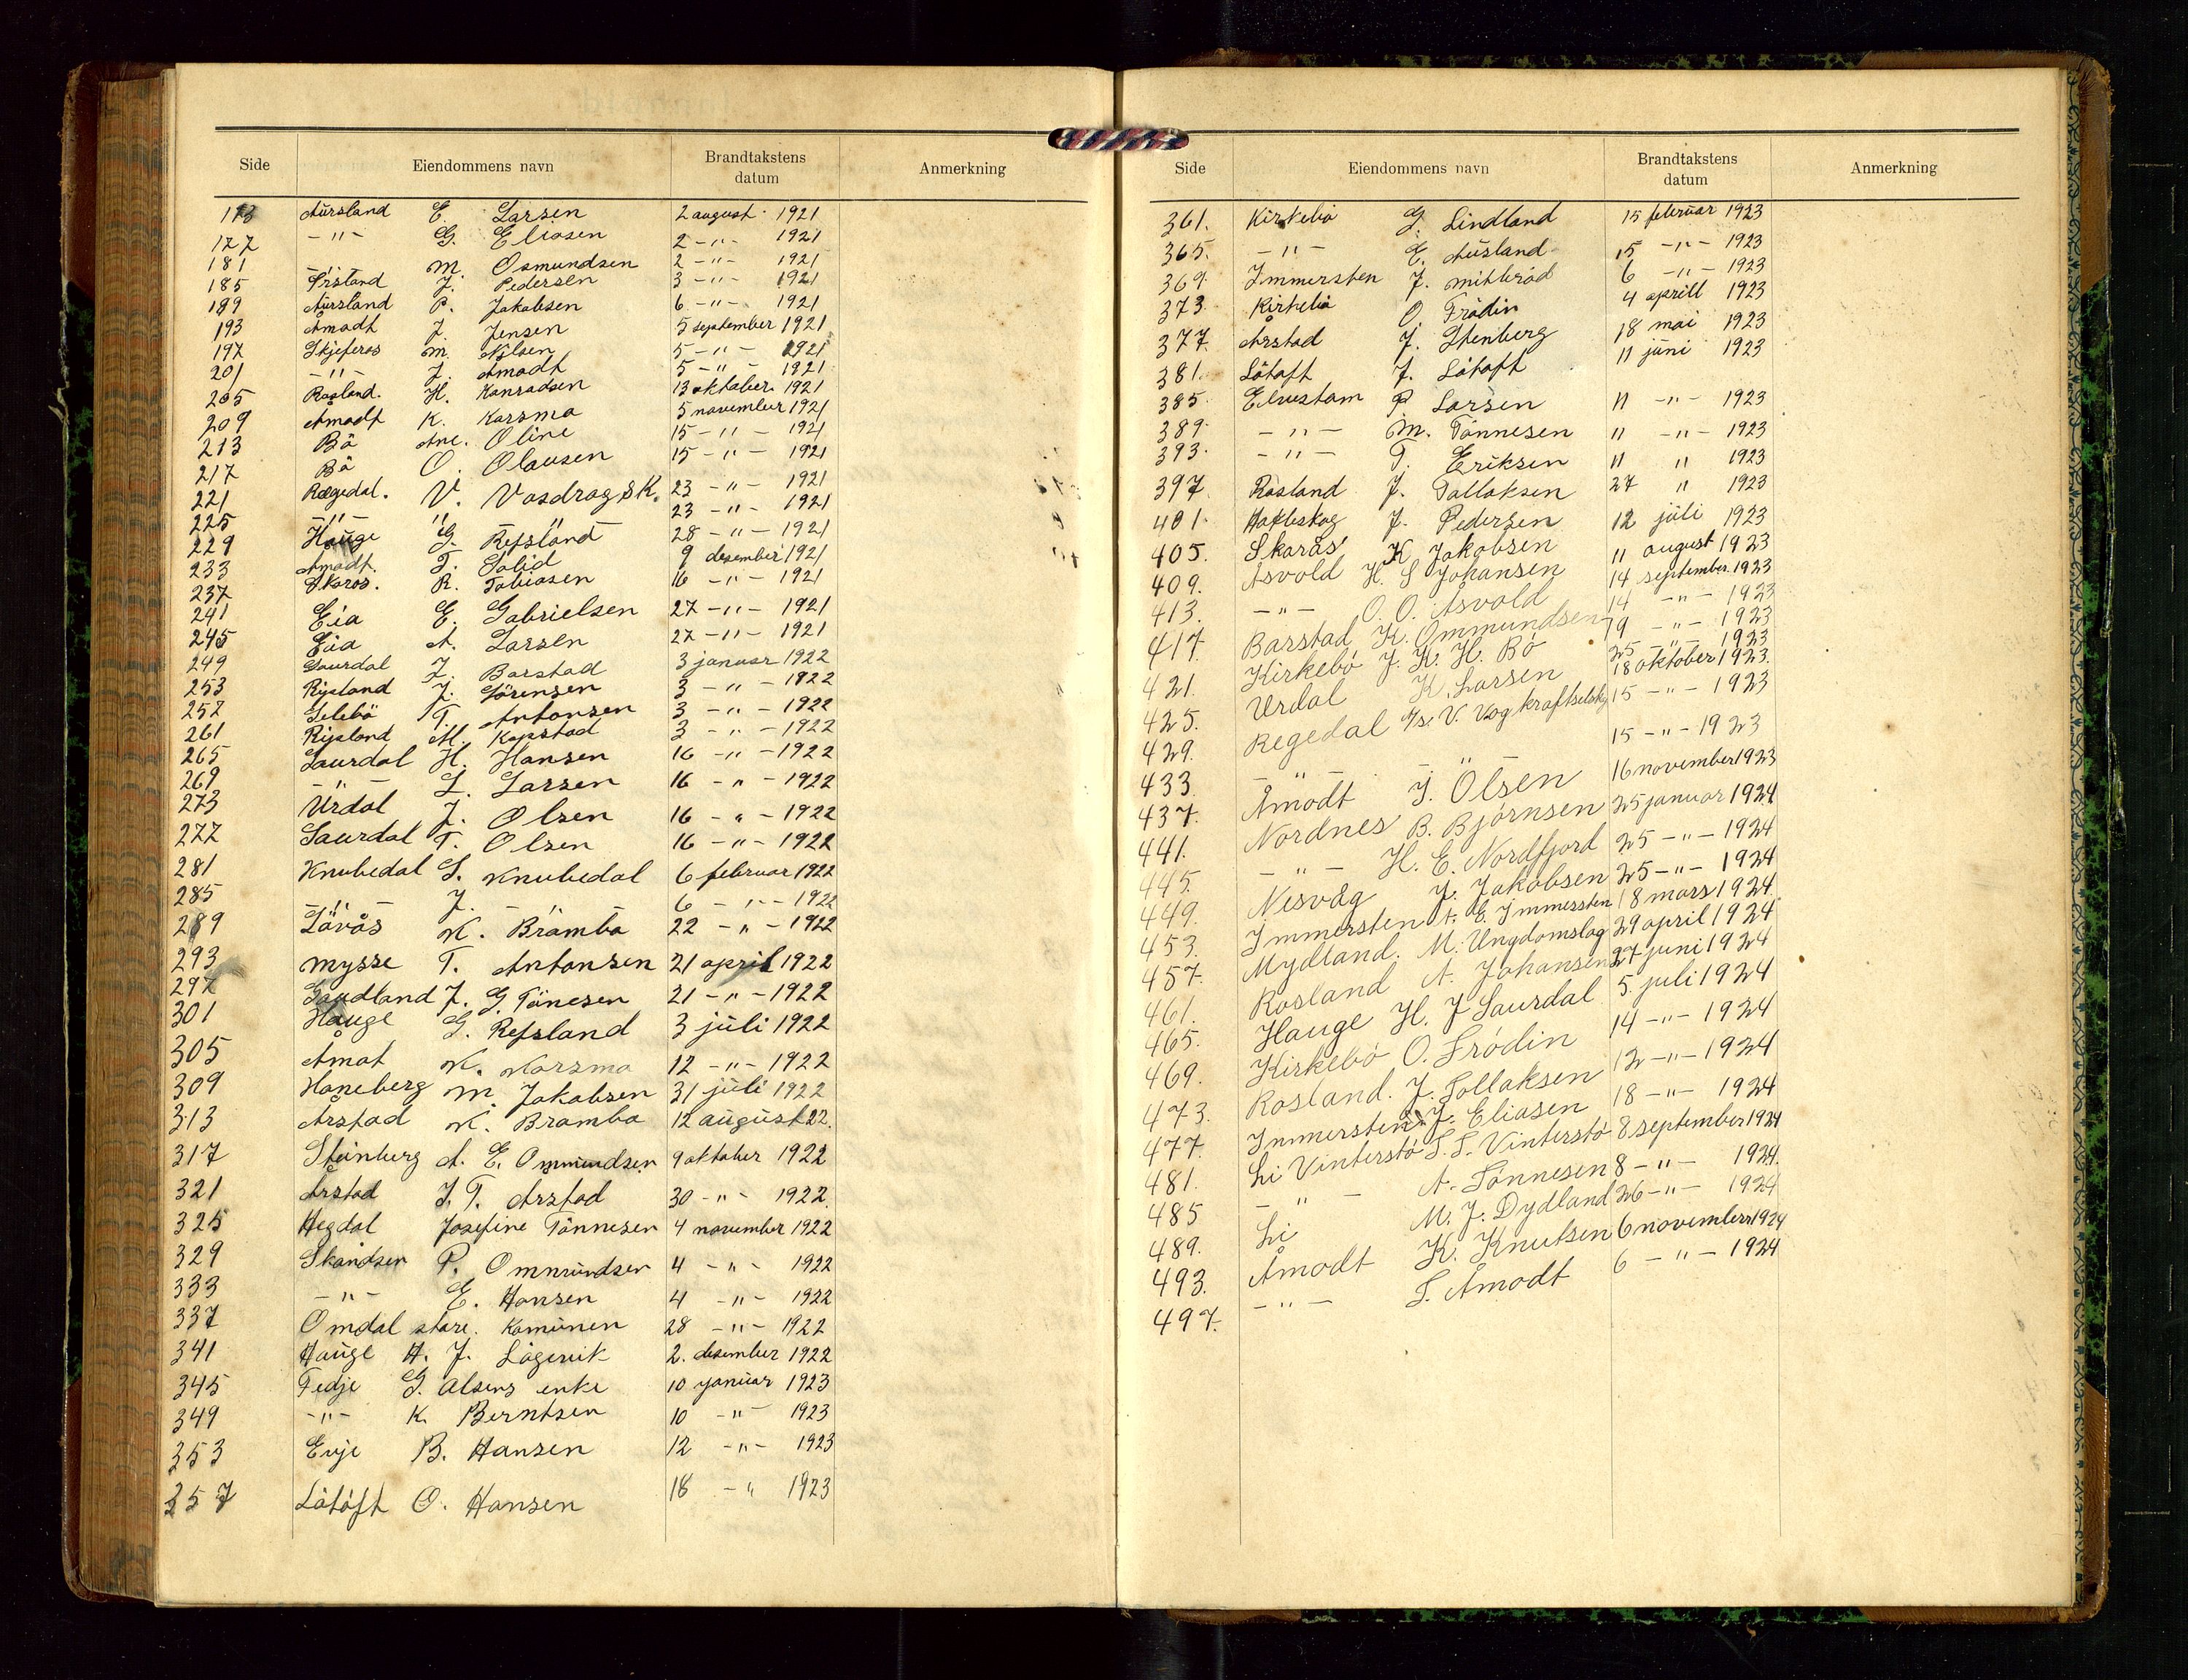 Side Eiendommens navn Brandtakstens datum Anmerkning
173 Aursland E. Larsen 2 august 1921
177 -"- G. Eliasen 2 -"- 1921
181 -"- M. Osmundsen 2 -"- 1921
185 Årstad J. Pedersen 3 -"- 1921
189 Aursland P. Jakobsen 6 -"- 1921
193 Åmodt J. Jensen 5 september 1921
197 Skjeferos M. Nilsen 5 -"- 1921
201 -"- J. Amodt 5 -"- 1921
205 Rosland. H. Konradsen 13 oktober 1921
209 Åmodt K. Karsma 5 november 1921
213 Bö Ane. Oline 15 -"- 1921
217 Bö O. Olausen 15 -"- 1921
221 Rægedal. V. Vasdrag S K. 23 -"- 1921
225 -"- " " 23 -"- 1921
229 Hauge G. Refsland 28 -"- 1921
233 Amodt. T. Solid 9 desember 1921
237 Skaros. R. Tobiasen 16 -"- 1921
241 Eia E. Gabrielsen 27 -"- 1921
245 Eia A. Larsen 27 -"- 1921
249 Saurdal J. Barstad 3 januar 1922
253 Ripland J. Sörensen 3 -"- 1922
257 Selebö T. Antonsen 3 -"- 1922
261 Ripland M. Kopstad 3 -"- 1922
265 Saurdal H. Hansen 16 -"- 1922
269 -"- L. Larsen 16 -"- 1922
273 Urdal J. Olsen 16 -"- 1922
277 Saurdal T. Olsen 16 -"- 1922
281 Knubedal S. Knubedal 6 februar 1922
285 -"- J. -"- 6 -"- 1922
289 Lövås K. Bramba 22 -"- 1922
293 Mysse T. Antonsen 21 april 1922
297 Gaudland J. G. Tönesen 21 -"- 1922
301 Hauge G. Refsland 3 juli 1922
305 Åmot K. Karsma 12 -"- 1922
309 Haneberg M. Jakobsen 31 juli 1922
313 Årstad K. Bramba 12 august 22.
317 Steinberg A. E. Ommundsen 9 oktober 1922
321 Årstad J. T. Arstad 30 -"- 1922
325 Hegdal Josefine Tönnesen 4 november 1922
329 Skåndsen P. Ommundsen 4 -"- 1922
333 -"- E. Hansen 4 -"- 1922
337 Omdal store. Komunen 28 -"- 1922
341 Hauge H. J. Lögevik 2. desember 1922
345 Tedje G. Alsens enke 10 januar 1923
349 -"- K. Berntsen 10 -"- 1923
353 Evje B. Hansen 12 -"- 1923
357 Lötöft O. Hansen 18 -" 1923
Side Eiendommens navn Brandtakstens datum Anmerkning
361. Kirkebö G. Lindland 15 februar 1923
365. -"- E. Ausland 15 -"- 1923
369. Immersten J. Mitbröd 6 -"- 1923
373. Kirkebö O. Frödin 4 aprill 1923
377. Årstad J. Stenberg 18 mai 1923
381. Lötoft J. Lötoft 11 juni 1923
385. Elvestam P. Larsen 11 -"- 1923
389. -"- M. Tönnesen 11 -"- 1923
393. -"- T. Eriksen 11 " 1923
397. Rosland J. Tollaksen 27 " 1923
401. Hafteskog J. Pedersen 12 juli 1923
405. Skarås K Jakobsen 11 august 1923
409. Åsvold H. S Johansen 14 september 1923
413. -"- O. O. Åsvold 14 -"- 1923
417. Barstad K. Ommundsen 19 -"- 1923
421. Kirkebö J. K. H. Bö 25 -"- 1923
425. Urdal K. Larsen 18 oktober 1923.
429. Regedal A/s. V. V og kraftselsk. 15 -"- 1923
433. -"- " 15 -"- 1923
437. Åmodt J. Olsen 16 november 1923
441. Nordnes B. Bjørnsen 25 januar 1924
445. -"- H. E. Nordfjord 25 -"- 1924
449. Nesvåg J. Jakobsen 25 -"- 1924
453. Immersten A. E. Immersten 18 mars 1924
457. Mydland. M. Ungdomslag 29 april 1924
461. Rosland A. Johansen 27 juni 1924
465. Hauge H. J Saurdal 5. juli 1924
469. Kirkebö O. Frödin 14 -"- 1924
473. Rosland. J. Tollaksen 12 -"- 1924
477. Immersten J. Eliasen 18 -"- 1924
481. Li Vinterstö S. S. Vinterstö 8 september 1924
485 -"- A. Tönnesen 8 -"- 1924.
489. Li M. J. Dydland 26 -"- 1924
493. Åmodt K. Knutsen 6 november 1924
497. -"- S. Åmodt 6 -"- 1924